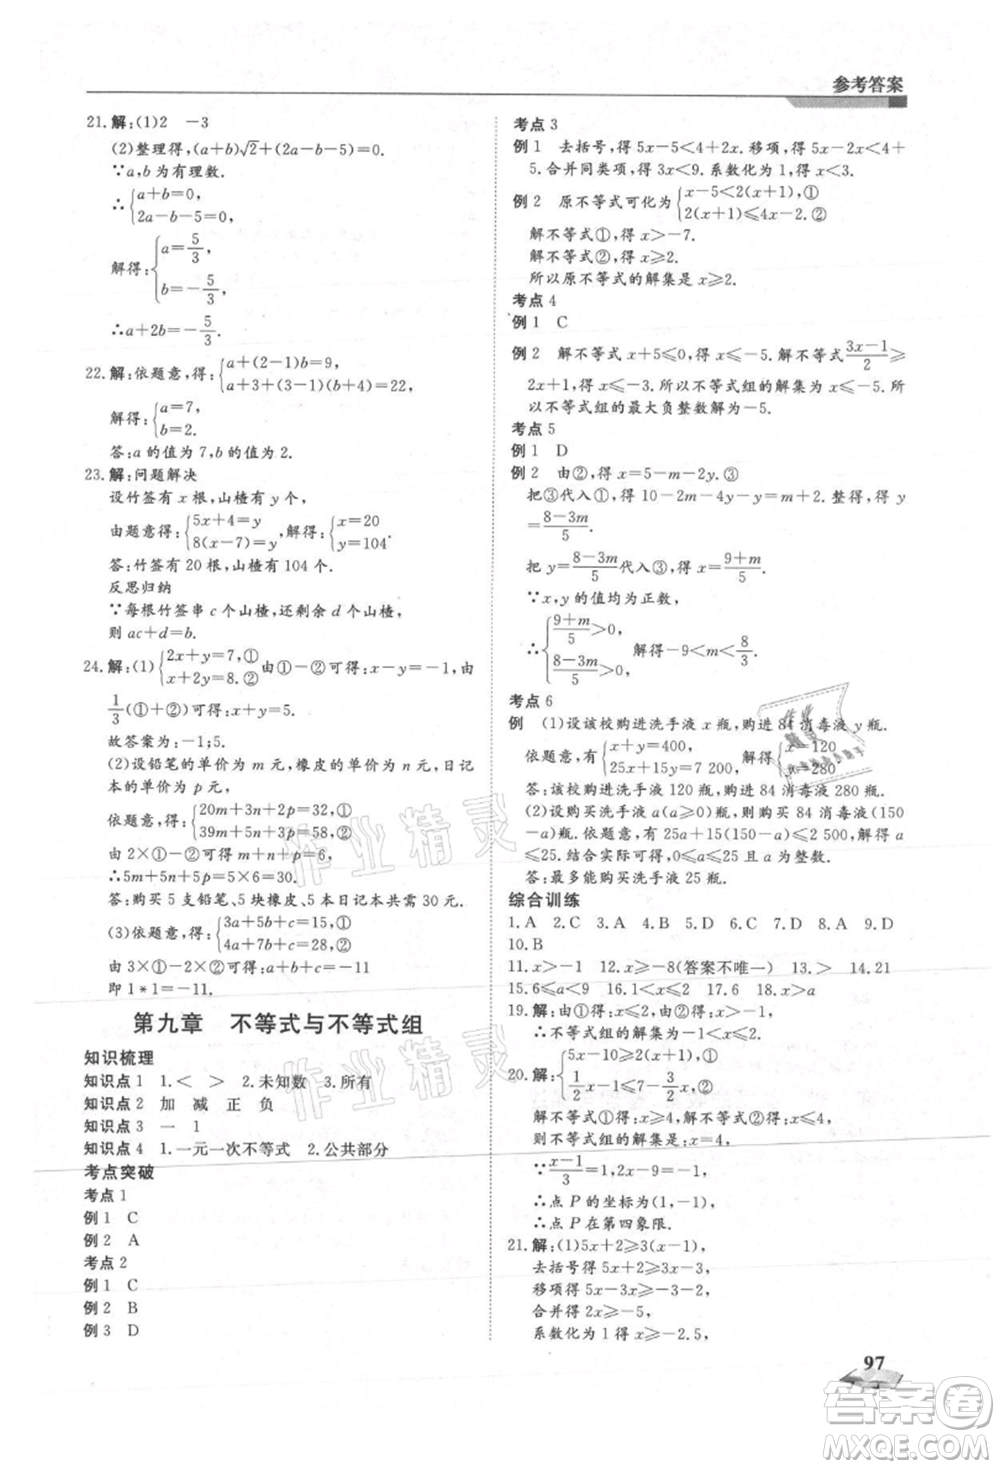 参考答案
21.解:(1)2 －3
(2)整理得,(a+b)√2+(2a-b-5)=0.
∵a,b为有理数.
∴{a+b=0,
2a-b-5=0.
解得:{a=5/3,
b=-5/3,
∴a+2b=-5/3.
22.解:依题意,得:{a+(2-1)b=9,
a+3+(3-1)(b+4)=22,
解得:{a=7,
b=2.
答:a的值为7,b的值为2.
23.解:问题解决
设竹签有x根,山楂有y个.
由题意得:{5x+4=y
8(x-7)=y,解得:{x=20
y=104.
答:竹签有20根,山楂有104个.
反思归纳
∵每根竹签串c个山楂,还剩余d个山楂,
则ac+d=b.
24.解:(1){2x+y=7,①
x+2y=8.②由①-②可得:x-y=-1,
1/3(①+②)可得:x+y=5.
故答案为:-1;5.
(2)设铅笔的单价为m元,橡皮的单价为n元,日记
本的单价为p元,
依题意,得:{20m+3n+2p=32,①
39m+5n+3p=58,②
由2×①-②可得m+n+p=6,
∴5m+5n+5p=5×6=30.
答:购买5支铅笔、5块橡皮、5本日记本共需30元.
(3)依题意得:{3a+5b+c=15,①
4a+7b+c=28,②
由3×①-2×②可得:a+b+c=-11,
即1*1=-11.
第九章 不等式与不等式组
知识梳理
知识点1 1.< > 2.未知数 3.所有
知识点2 加 减 正 负
知识点3 一 1
知识点4 1.一元一次不等式 2.公共部分
考点突破
考点1
例1 C
例2 A
考点2
例1 C
例2 B
例3 D
考点3
例1 去括号,得5x-5<4+2x.移项,得5x-2x<4+
5.合并同类项,得3x<9.系数化为1,得x<3.
例2 原不等式可化为{x-5<2(x+1),①
2(x+1)≤4x-2.②
解不等式①,得x>-7.
解不等式②,得x≥2.
所以原不等式的解集是x≥2.
考点4
例1 C
例2 解不等式x+5≤0,得x≤-5,解不等式(3x-1)/2≥
2x+1,得x≤-3.所以不等式组的解集为x≤-5.所
以不等式组的最大负整数解为-5.
考点5
例1 D
例2 由②,得x=5-m-2y.③
把③代入①,得10-2m-4y-y=m+2,得y
=(8-3m)/5.
把y=(8-3m)/5代入③,得x=(9+m)/5.
∵x,y的值均为正数,
∴{(9+m)/5>0,
(8-3m)/5>0,解得-9<m<8/3.
考点6
例 (1)设该校购进洗手液x瓶,购进84消毒液y瓶.
依题意,有{x+y=400,
25x+15y=7 200,解得{x=120
y=280
答:该校购进洗手液120瓶,购进84消毒液280瓶.
(2)设购买洗手液a(a≥0)瓶,则购买84消毒液(150
-a)瓶.依题意,有25a+15(150-a)≤2 500,解得a
≤25.结合实际可得:0≤a≤25且a为整数.
答:最多能购买洗手液25瓶.
综合训练
1.A 2.C 3.A 4.B 5.D 6.D 7.C 8.A 9.D
10.B
11.x>-1 12.x≥-8(答案不唯一) 13.> 14.21
15.6≤a<9 16.1<x≤4 17.m≤2 18.x>a
19.解:由①得:x≤2,由②得:x>-1,
∴不等式组的解集为-1<x≤2.
20.解:{5x-10≥2(x+1),①
1/2x-1≤7-3/2x,②
解不等式①得:x≥4,解不等式②得:x≤4,
则不等式组的解集是:x=4,
∵(x-1)/3=1,2x-9=-1,
∴点P的坐标为(1,-1),
∴点P在第四象限.
21.解:(1)5x+2≥3(x-1),
去括号得5x+2≥3x-3,
移项得5x-3x≥-3-2,
合并得2x≥-5,
系数化为1得x≥-2.5,
97
作业精灵
作业精灵
答案圈
MXQE.COM